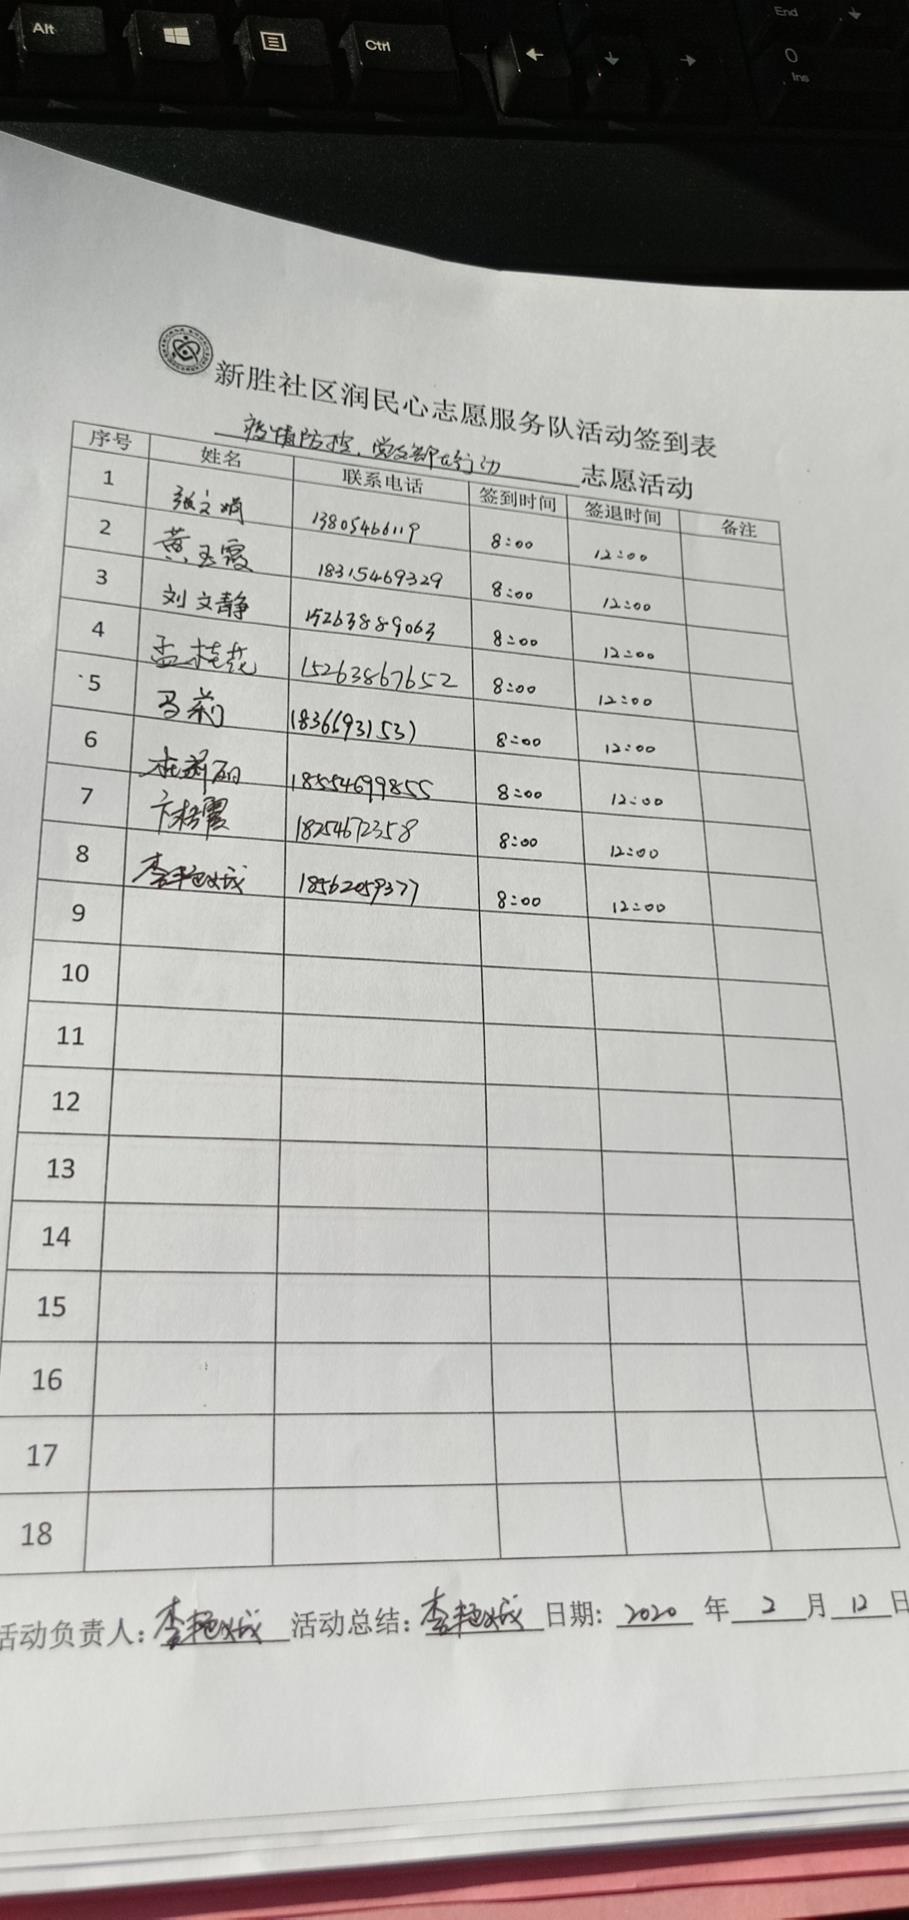 Alt
Ctrl
End
0
Ins
新胜社区润民心志愿服务队活动签到表
疫情防控，党支部在行动 志愿活动
序号 姓名 联系电话 签到时间 签退时间 备注
1 张文娟 13805466119 8:00 12:00
2 黄玉霞 18315469329 8:00 12:00
3 刘文静 15263889063 8:00 12:00
4 孟桂花 15263867652 8:00 12:00
5 马莉 18366931531 8:00 12:00
6 18554699855 8:00 12:00
7 18254672358 8:00 12:00
8 李艳斌 18562059377 8:00 12:00
9
10
11
12
13
14
15
16
17
18
活动负责人: 李艳斌 活动总结: 李艳斌 日期: 2020 年 2 月 12 日